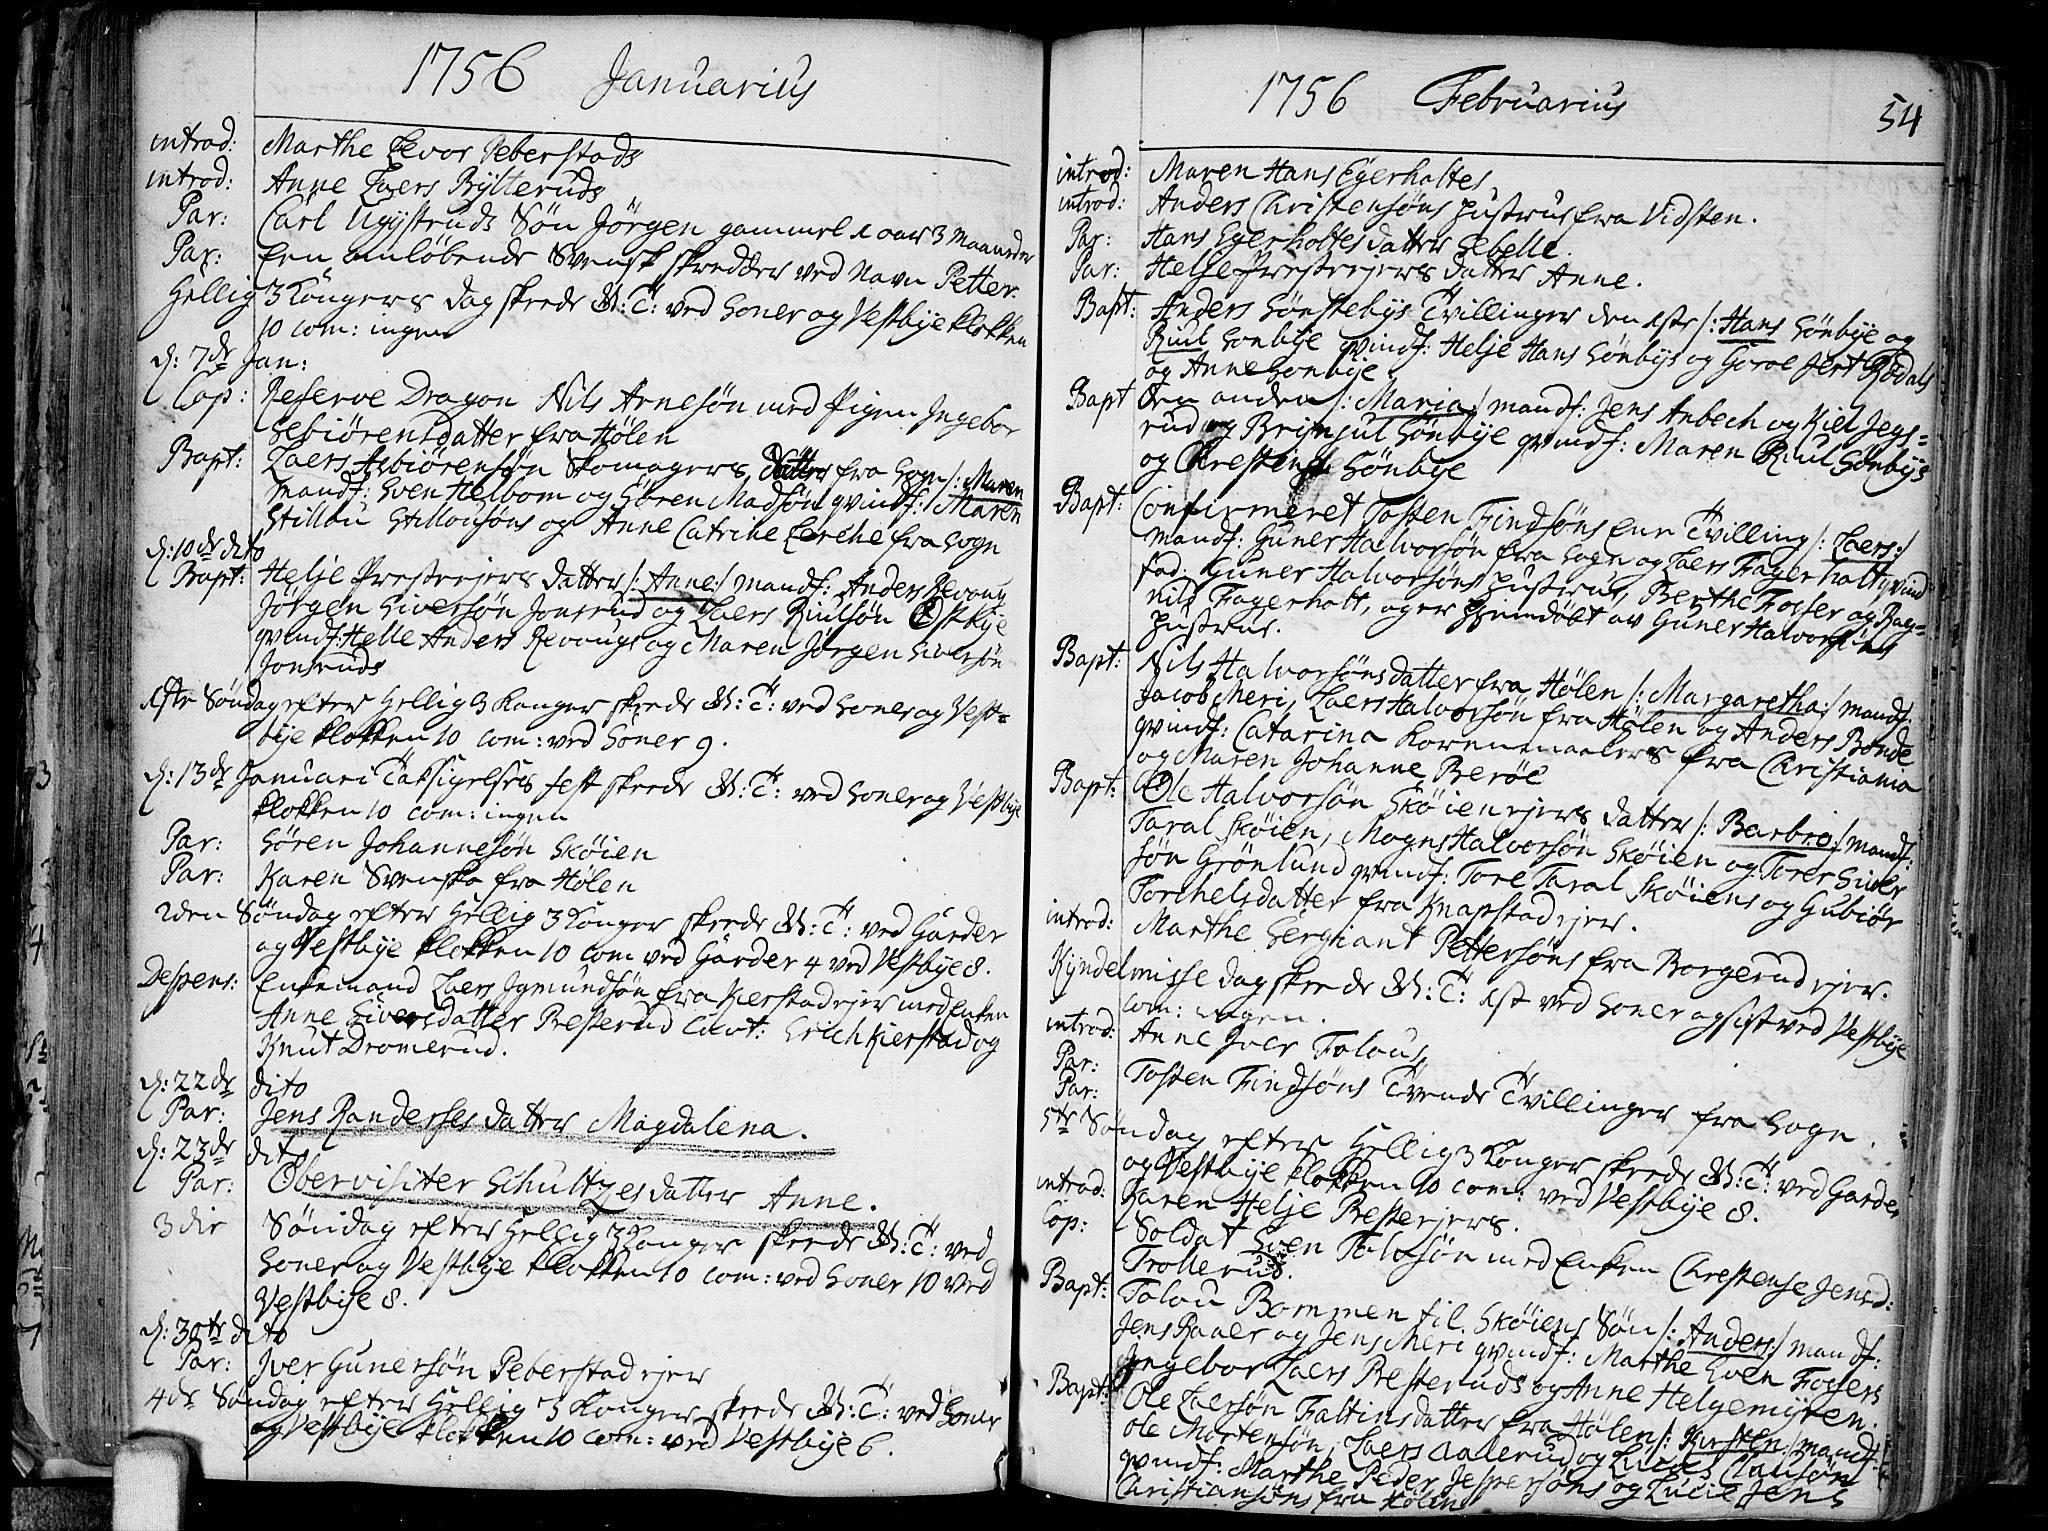 1756 Januarius
introd: Marthe Levor Peberstads
introd: Anne Laers Bÿlteruds
Par: Carl Søn Jörgen gammel 1 aar 3 Maaneder
Par: Een omlöbende Svensk skredder ved Navn Petter.
Hellig 3 Kongers dag skeede G: T: ved Soner og Vestbÿe klokken
10 com: ingen
d: 7de Jan:
Cop: Reserve Dragon Nils Arnesøn med Pigen Ingebor
Sebiörensdatter fra Hølen
Bapt: Laers Asbiörensøn Skomagers datter fra Sogn /: Maren
mandf: Sven Helbom og Sören Madsøn qvindf: Maren
Stillou Stillousöns og Anne Catrine Lerche fra Sogn
d: 10de dito
Bapt: Helje Presteejers datter /: Anne :/ mandf: Anders Revoug
Jörgen Siversøn Jonsrud og Laers Riulsøn Østbÿe
qvindf: Helle Anders Revougs og Maren Jörgen Siversøn
Jonsruds
1ste Søndag efter Hellig 3 Konger skeede G: T: ved Soner og Vest=
bÿe klokken 10 com: ved Soner 9.
d: 13de Januari Taksigelses fest skeede G: T: ved Soner og Vestbÿe
klokken 10 com: ingen
Par: Sören Johannesøn Skøien
Par: Karen Svenska fra Hølen
2den Søndag efter Hellig 3 Konger skeede G: T: ved Garder
og Vestbÿe klokken 10 com ved Garder 4 ved Vestbÿe 8.
Despens: Enkemand Laers Igmundsøn fra Kierstad ejer med Enken
Anne Siversdatter Presterud Cavt: Erich Kierstad og
Knut Dromerud.
d: 22de dito
Par: Jens Randerses datter Magdalena.
d: 23de dito
Par: Obervisiter Schultzes datter Anne.
3die Søndag efter Hellig 3 Konger skeede G: T: ved
Soner og Vestbÿe klokken 10 com: ved Soner 10 ved
Vestbÿe 8.
d: 30te dito
Par: Iver Gunersøn Peberstad ejer
4de Søndag efter Hellig 3 Konger skeede G: T: ved Soner
og Vestbÿe klokken 10 com: ved Vestbÿe 6.
1756 Februarius 54
introd: Maren Hans Egerholtes
introd: Anders Christensøns hustrue fra Vidsten.
Par: Hans Egerholtes datter Sebelle.
Par: Helje Presteejers datter Anne.
Bapt: Anders Sønstebÿs Tvillinger den 1ste /: Hans Sönbÿe og
Riul Sonbÿe qvindf: Helje Hans Sönbÿs og Goroe Jert Rødals
og Anne Sonbÿe
Bapt den anden /: Maria :/ mandf: Jens Anbech og Kiel Jegs=
rud og Brinjul Sönbÿe qvindf: Maren Riul Sonbÿs
og Chrestine Sönbye
Bapt: Confirmeret Tosten Findsøns Een Tvilling /: Laers :/
mandf: Guner Halvorsøn fra Sogn og Laers Fagerholt qvind
fad: Guner Halvorsøns hustrue, Berthe Fosser og Rag=
nild Fagerholt, og er hjemdøbt av Guner Halvorsöns
hustrue.
Bapt: Nils Halvorsöns datter fra Hølen /: Margaretha :/ mandf:
Jacob Meri, Laers Halvorsøn fra Hølen og Anders Bonde
qvindf: Catarina Korenmaalers fra Christiania
og Maren Johanne Beröe
Bapt: Ole Halvorsøn Skøien ejers datter /: Barbro :/ mandf:
Taral Skøien, Mogns Halvorsøn Skøien og Torer Siver
søn Grönlund qvindf: Tore Taral Skøiens og Gubiör
Torchelsdatter fra Knapstad ejer.
introd: Marthe Sergiant Pettersøns fra Borgerud ejer.
Kÿndelmisse dag skeede G: T: 1st ved Soner og sist ved Vestbÿe
com: ingen.
introd: Anne Iver Tolous
Par:
Par: Tosten Findsøns Tvende Tvillinger fra Sogn.
5te Søndag efter Hellig 3 Konger skeede G: T: ved Garder
og Vestbÿe klokken 10 com: ved Vestbÿe 8.
introd: Karen Helje Presteejers.
Cop: Soldat Sven Tolvsøn med Enken Chrestense Jensd:
Trollerud.
Bapt: Tolou Bommen til Skøiens Søn /: Anders :/ mandf:
Jens Raaer og Jens Meri qvindf: Marthe Sven Fossers
Ingebor Laers Presteruds og Anne Helgemÿren.
Bapt: Ole Laersøn Faltins datter fra Hølen /: Kirsten :/ mandf:
Ole Mortensøn, Laers Aalerud og Lucas Clausøn
qvindf: Marthe Peder Jespersøns og Lucie Jens
Christiansøns fra Hølen